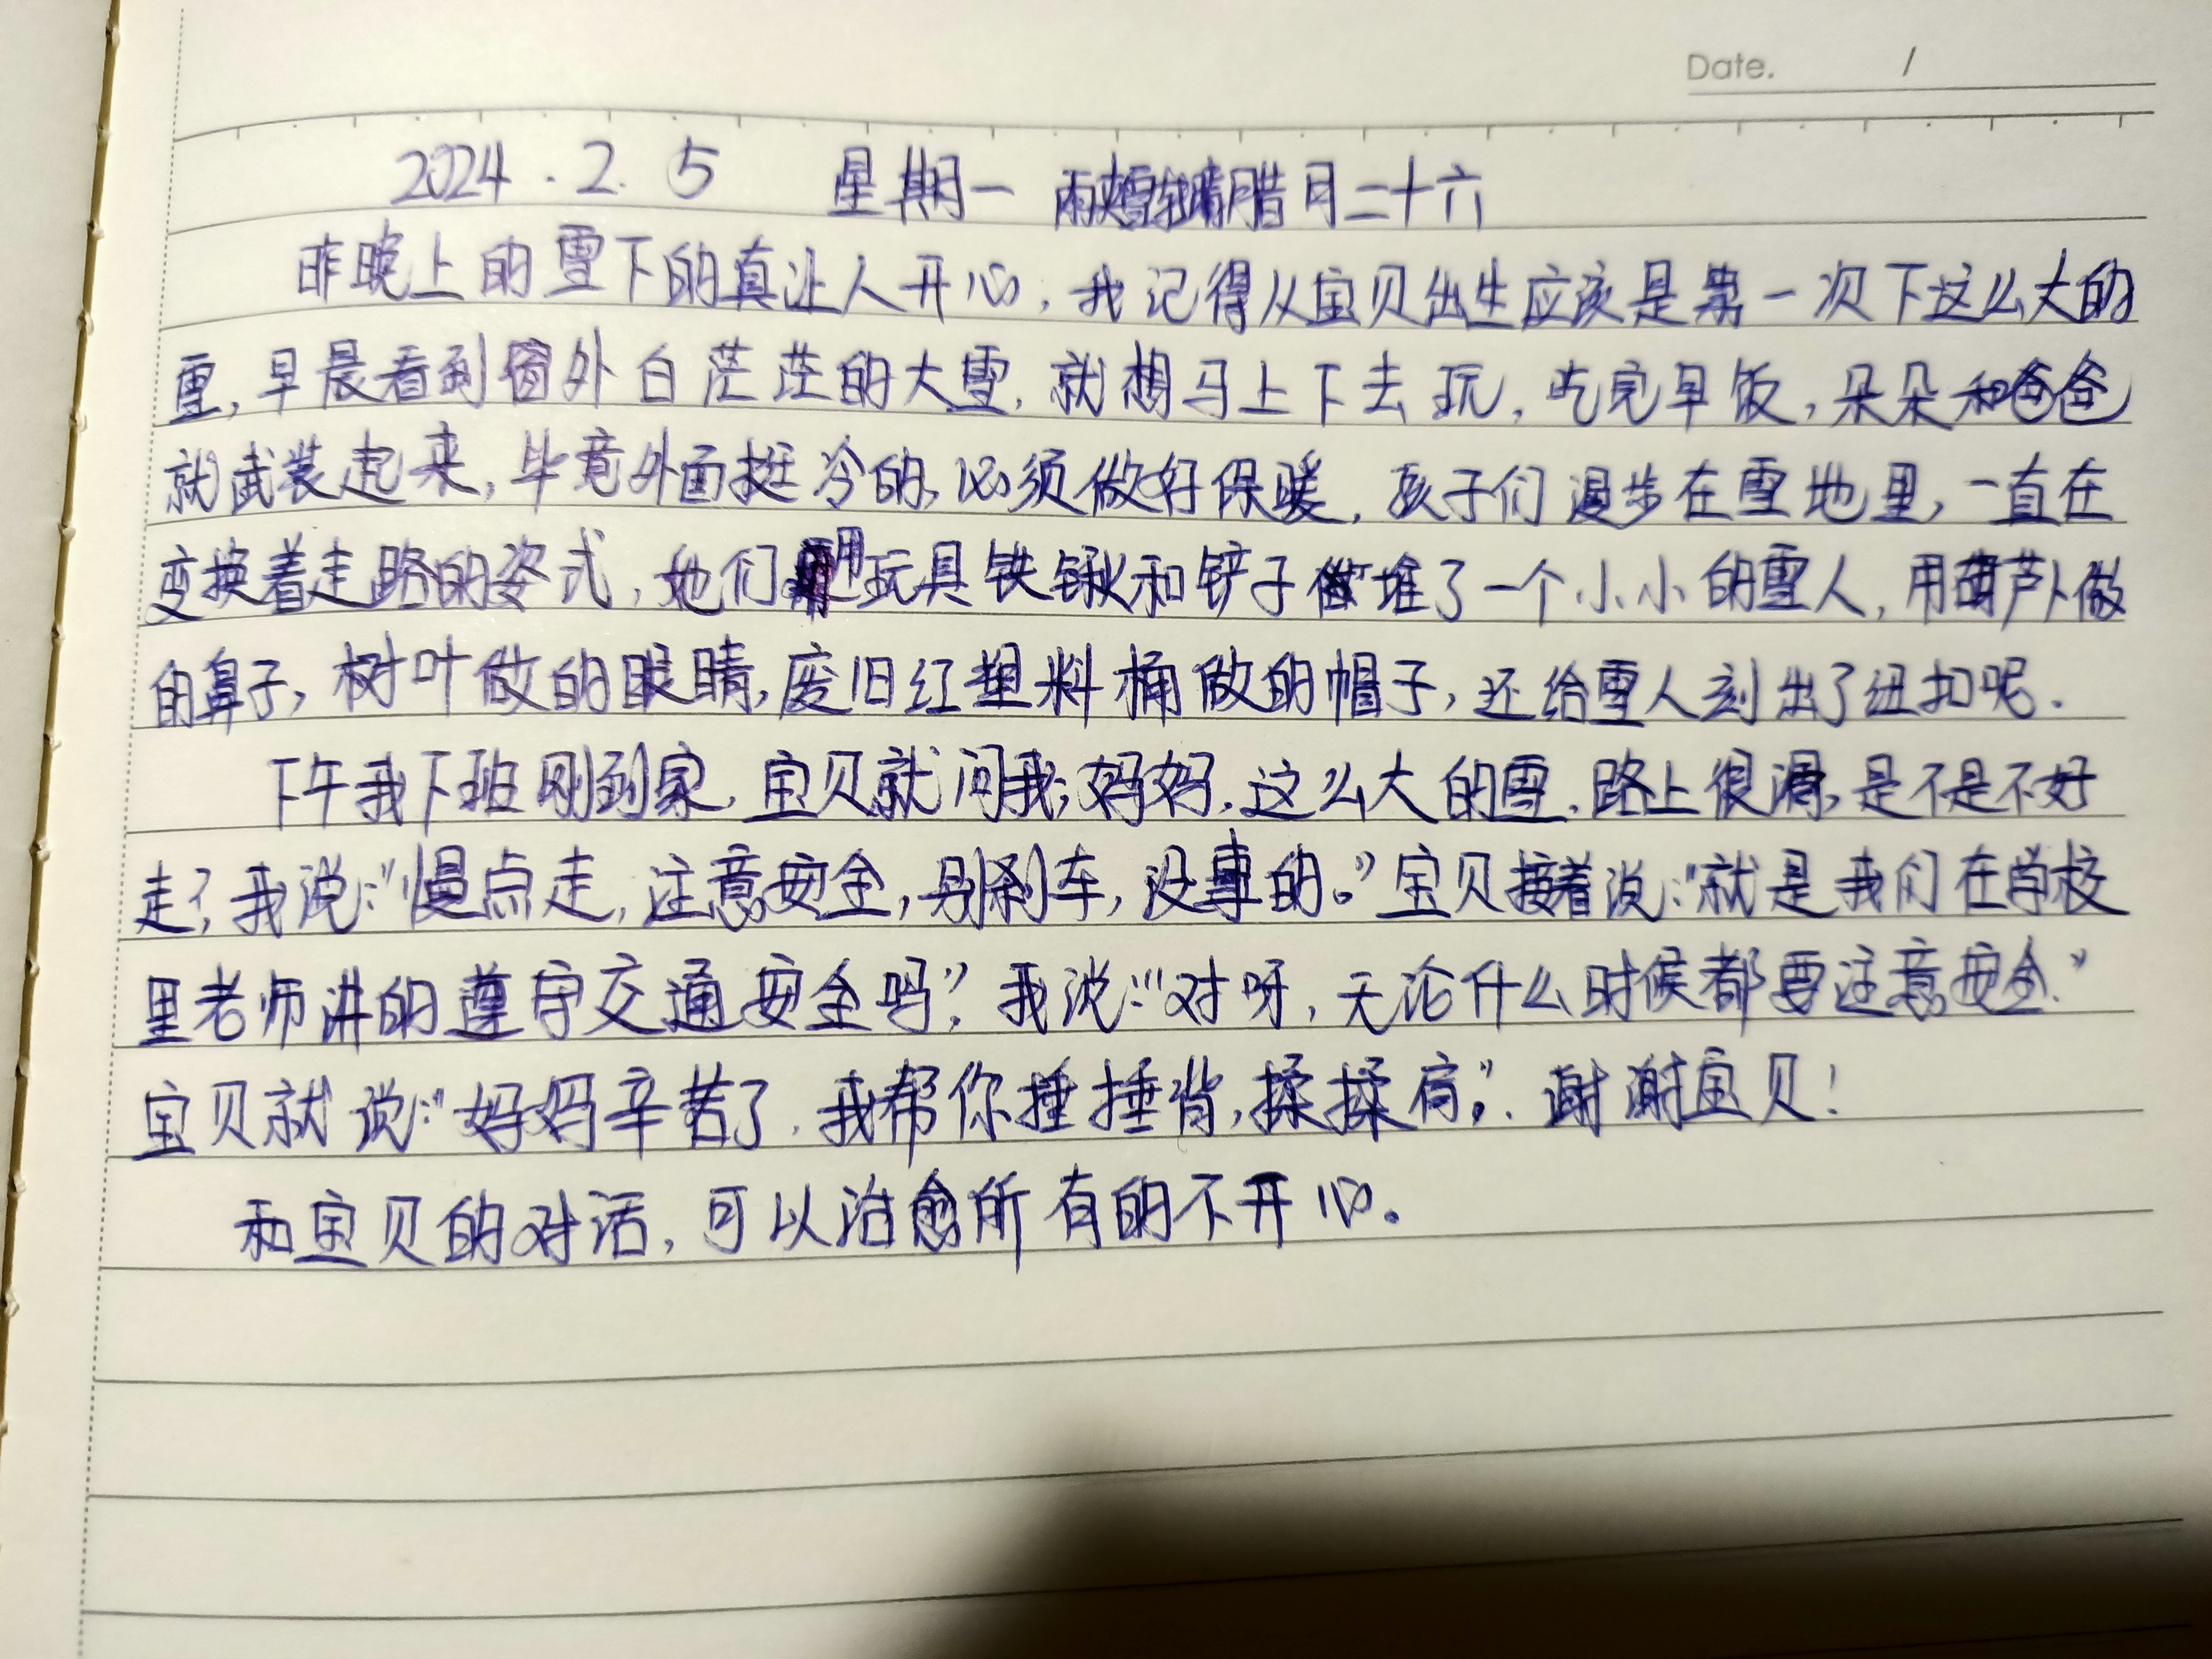 Date. /
2024.2.5 星期一 雨夹雪转晴腊月二十六
昨晚上的雪下的真让人开心,我记得从宝贝出生应该是第一次下这么大的
雪,早晨看到窗外白茫茫的大雪,就想马上下去玩,吃完早饭,朵朵和爸爸
就武装起来,毕竟外面挺冷的,必须做好保暖,孩子们漫步在雪地里,一直在
变换着走路的姿式,她们用玩具铁锹和铲子堆了一个小小的雪人,用葫芦卜做
的鼻子,树叶做的眼睛,废旧红塑料桶做的帽子,还给雪人刻出了纽扣呢.
下午我下班刚到家,宝贝就问我;妈妈,这么大的雪,路上很滑,是不是不好
走?我说:"慢点走,注意安全,别刹车,没事的。"宝贝接着说:"就是我们在学校
里老师讲的遵守交通安全吗?"我说:"对呀,无论什么时候都要注意安全."
宝贝就说:"妈妈辛苦了,我帮你捶捶背,揉揉肩,".谢谢宝贝!
和宝贝的对话,可以治愈所有的不开心。